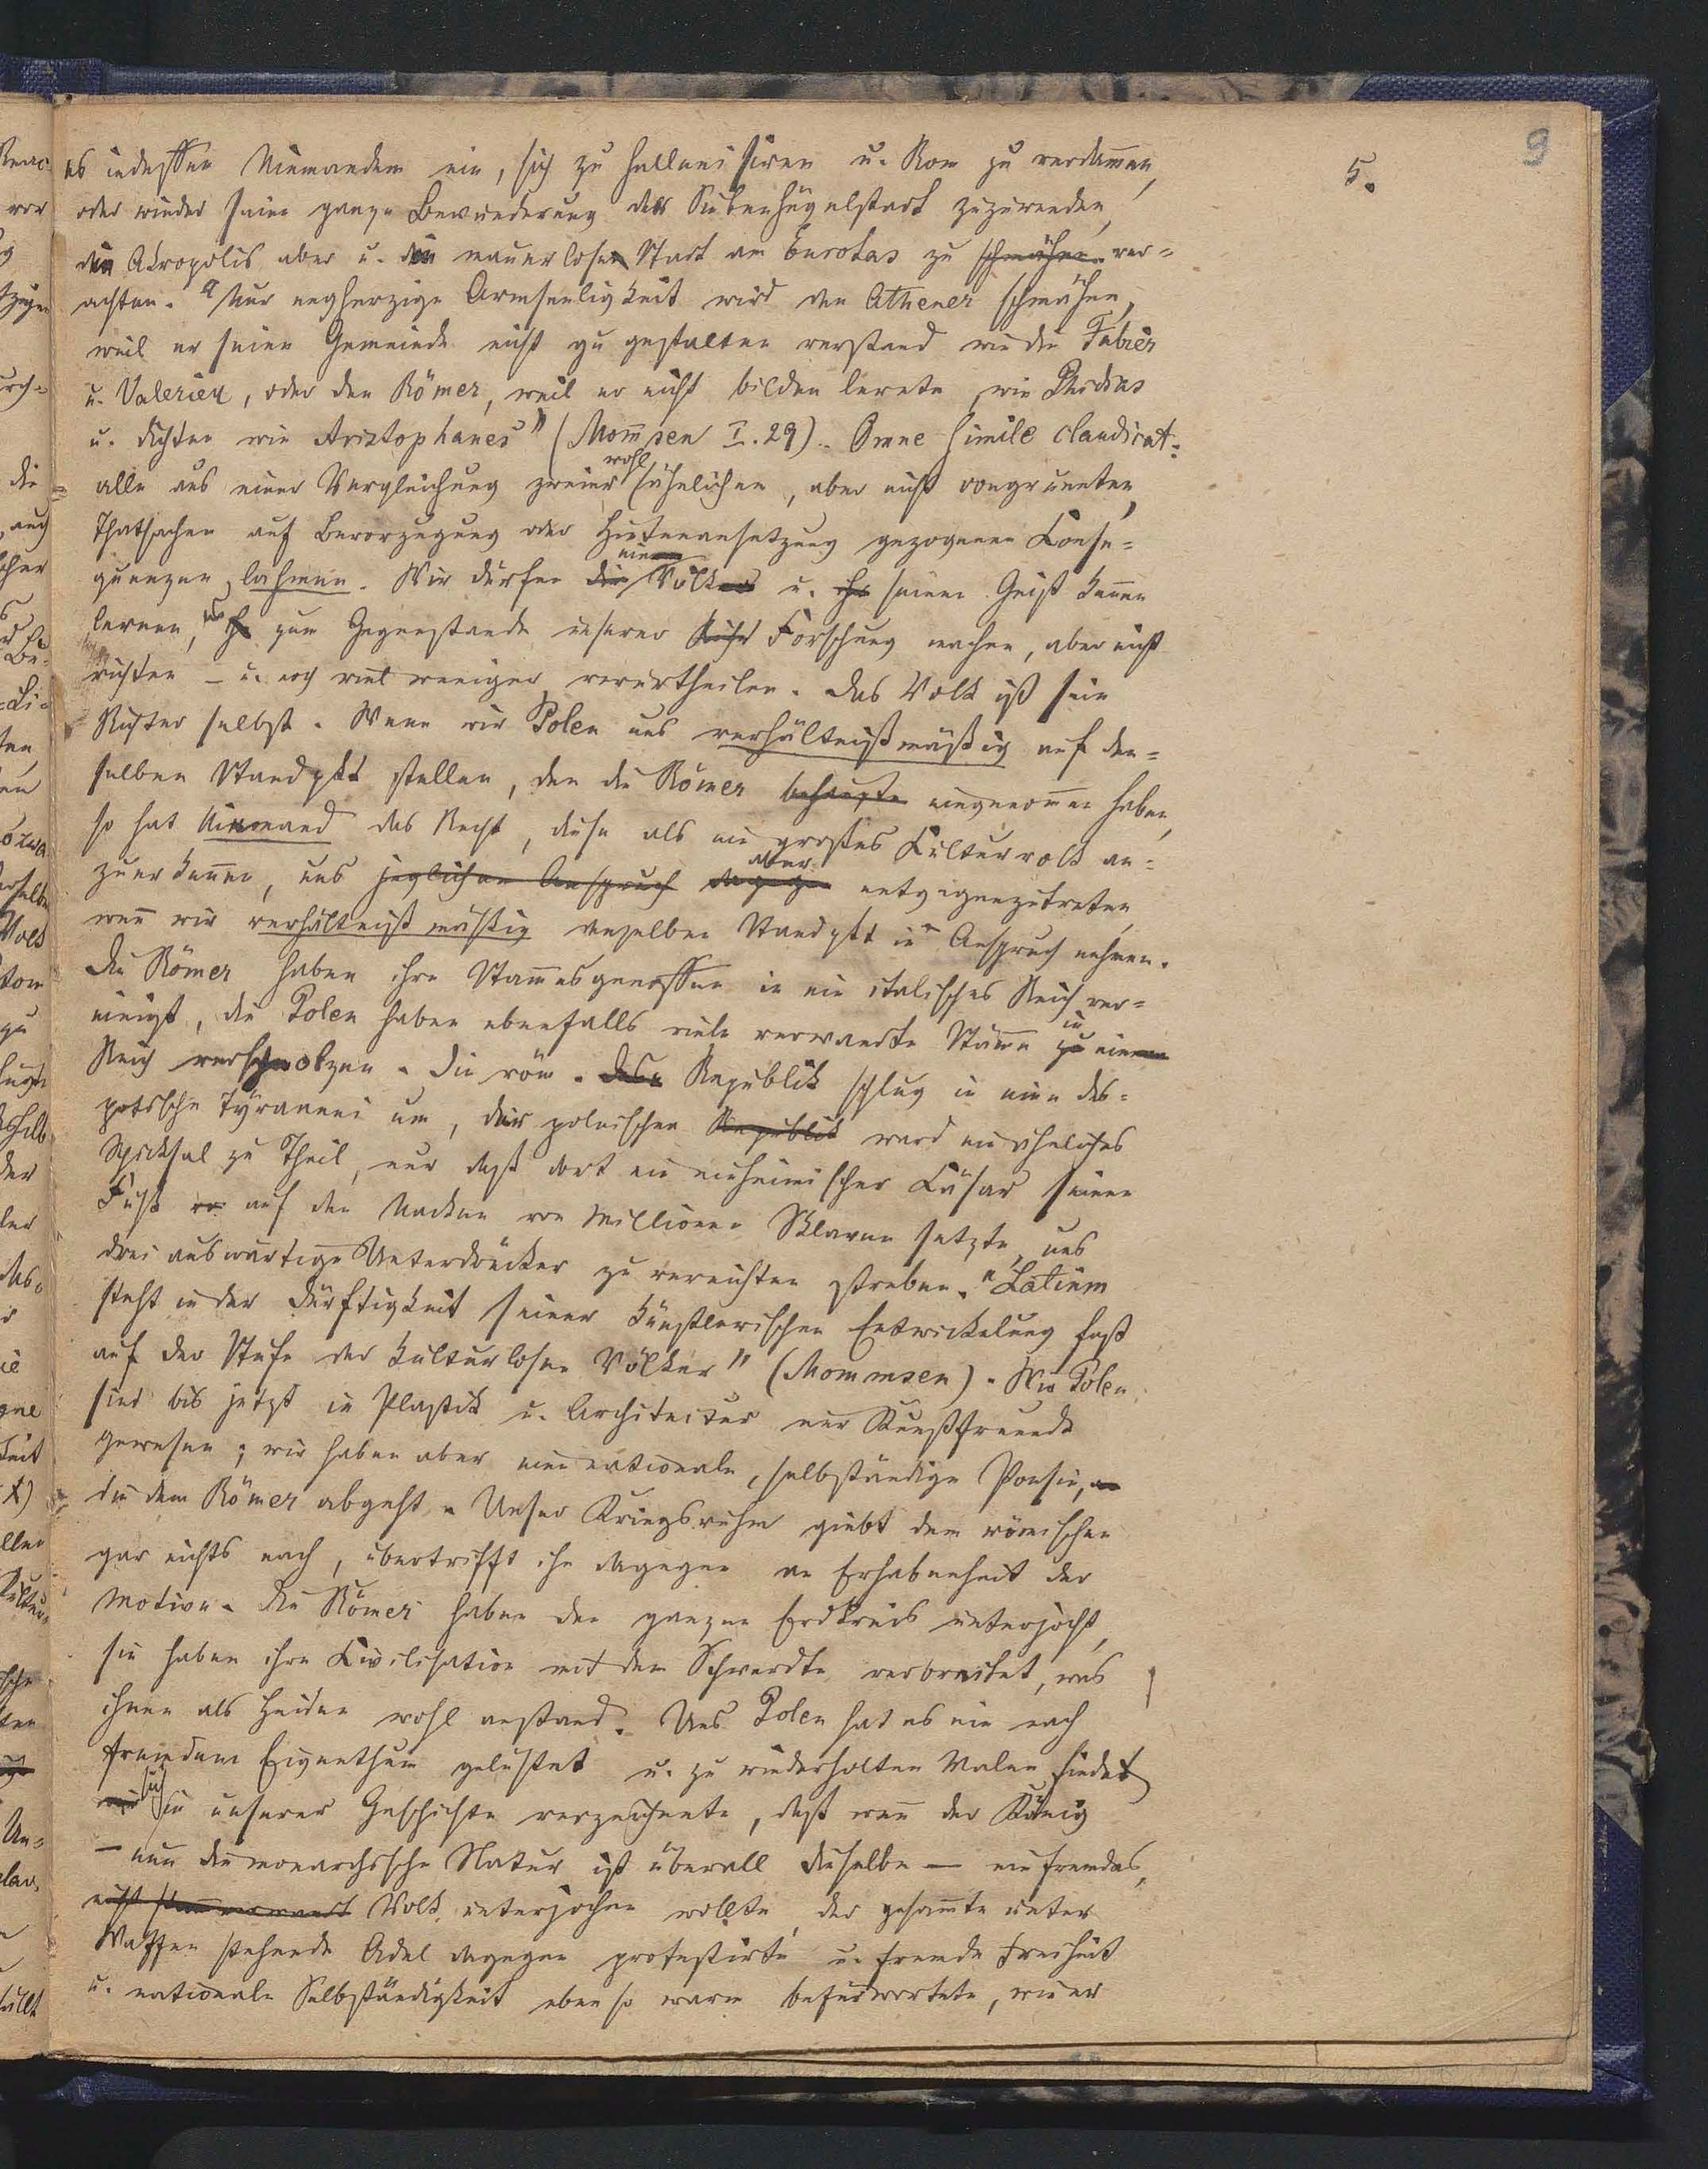 9
5.
es indessen Niemandem ein, sich zu hellenisiren u. Rom zu verdam̄en,
oder wieder seine ganze Bewunderung der Siebenhügelstadt zuzuwenden,
die Akropolis aber u. die mauerlose Stadt am Eurotas zu schmähen ver=
achten. "Nur engherzige Armseeligkeit wird den Athener schmähen,
weil er seine Gemeinde nicht zu gestalten verstand wie die Fabier
u. Valerier, oder den Römer, weil er nicht bilden lernte, wie Phidias
u. dichten wie Aristophanes" (Mom̄sen I. 29). Omne simile claudicat:
alle aus einer Vergleichung zweier wohl ähnlichen, aber nicht congruenten,
Thatsachen auf Bevorzugung oder Hintenansetzung gezogenen Conse=
quenzen lahmen. Wir dürfen die ein Volk u. ihr seinen Geist ken̄en
lernen, es zum Gegenstande unserer Forschung machen, aber nicht
richten – u. noch viel weniger verurtheilen. Das Volk ist sein
Richter selbst. Wenn wir Polen uns verhältnißmäßig auf den=
selben Standpkt stellen, den die Römer behaupten eingenom̄en haben,
so hat Niemand das Recht, diese als ein großes Culturvolk an=
zuerken̄en, uns jeglichen Anspruch dagegen aber entgegenzutreten,
wen̄ wir verhältnißmäßig denselben Standpkt in Anspruch nehmen.
Die Römer haben ihre Stam̄esgenossen in ein italisches Reich ver=
einigt, die Polen haben ebenfalls viele verwandte Stäm̄e zu in ein
Reich verschmolzen. Die röm. Republik schlug in eine des=
potische Tyrannei um, der polnischen Republik ward ein ähnliches
Schicksal zu Theil, nur daß dort ein einheimischer Cäsar seinen
Fuß auf den Nacken von Millionen Sklaven setzte, uns
drei auswärtige Unterdrücker zu vernichten streben. "Latium
steht in der Dürftigkeit seiner künstlerischen Entwickelung fast
auf der Stufe der kulturlosen Völker" (Mommsen). Wir Polen
sind bis jetzt in Plastik u. Architectur nur Kunstfreunde
gewesen; wir haben aber eine nationale, selbständige Poesie,
die dem Römer abgeht. Unser Kriegsruhm giebt dem römischen
gar nichts nach, übertrifft ihn dagegen an Erhabenheit der
Motive. Die Römer haben den ganzen Erdkreis unterjocht,
sie haben ihre Civilisation mit dem Schwerdte verbreitet, was
ihnen als Heiden wohl anstand. Uns Polen hat es nie nach
fremdem Eigenthum gelüstet u. zu wiederholten Malen findet
sich in unserer Geschichte verzeichnete, daß wen̄ der König
– nun die monarchische Natur ist überall dieselbe – ein fremdes,
nicht stam̄verwandt Volk unterjochen wollte, der gesam̄te unter
Waffen stehende Adel dagegen protestirte u. fremde Freiheit
u. nationale Selbständigkeit ebenso warm befürwortete, wie er